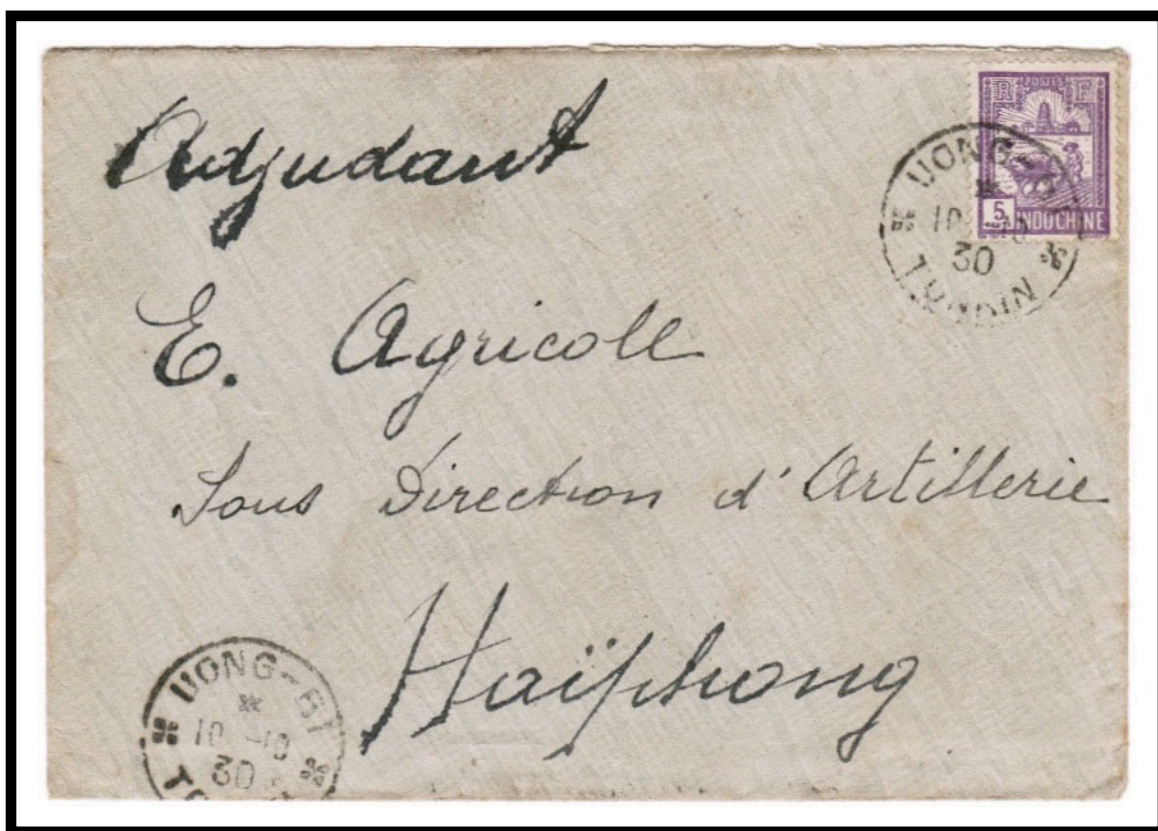 Adjudant
E. Agricole
Sous Direction d'Artillerie
Haïphong
R POSTES F
5 INDOCHINE
UONG-BI
10 -10
30
TONKIN
UONG-BI
10 -10
30